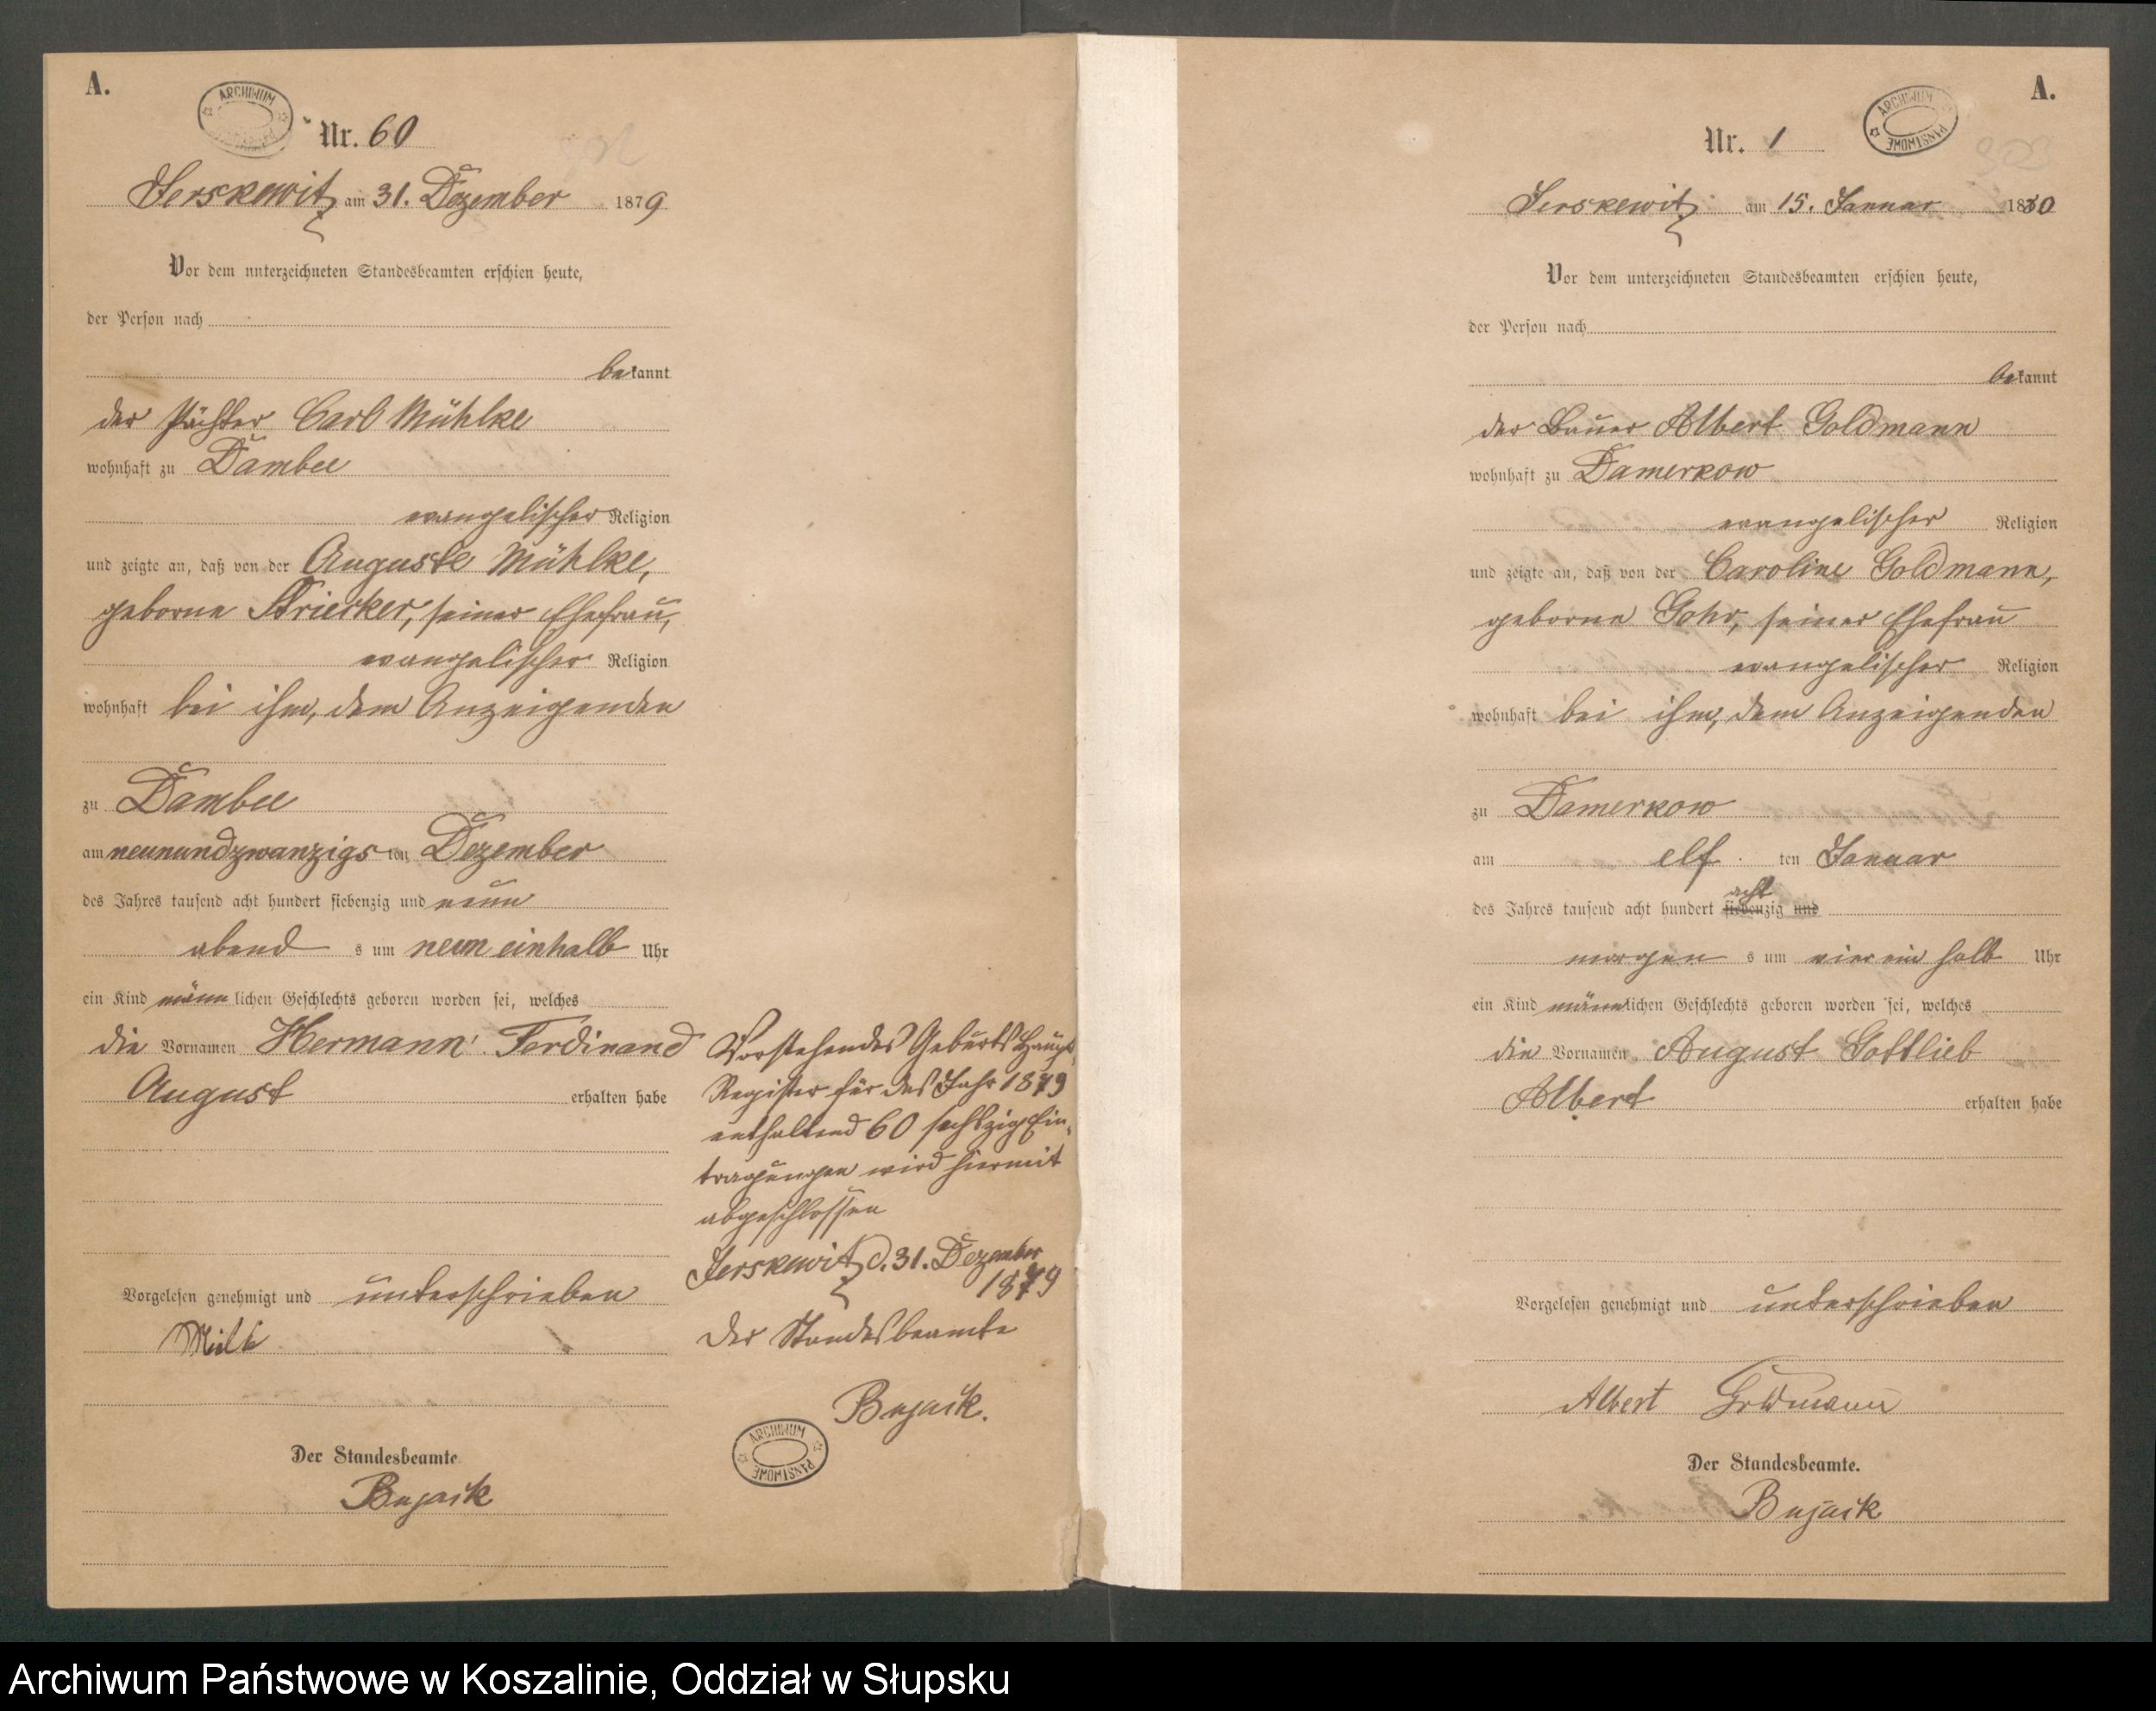 A.
ARCHIWUM
Nr. 60
Jerskewitz am 31. Dezember 1879
Vor dem unterzeichneten Standesbeamten erschien heute,
der Person nach
bekannt
der Pächter Carl Mühlke
wohnhaft zu Dambee
evangelischer Religion
und zeigte an, daß von der Auguste Mühlke,
geborne Striecker, seiner Ehefrau,
evangelischer Religion
wohnhaft bei ihm, dem Anzeigenden
zu Dambee
am neunundzwanzigsten Dezember
des Jahres tausend acht hundert siebenzig und neun
abends um neun einhalb Uhr
ein Kind männlichen Geschlechts geboren worden sei, welches
die Vornamen Hermann Ferdinand
August erhalten habe
Vorgelesen genehmigt und unterschrieben
Der Standesbeamte
Bujack
Vorstehendes Geburts Haupt
Register für das Jahr 1879
enthaltend 60 sechszig Ein-
tragungen wird hiermit
abgeschlossen
Jerskewitz d. 31. Dezember
1879
Der Standesbeamte
Bujack.
ARCHIWUM PAŃSTWOWE
A.
ARCHIWUM PAŃSTWOWE
Nr. 1
Jerskewitz am 15. Januar 1880
Vor dem unterzeichneten Standesbeamten erschien heute,
der Person nach
bekannt
der Bauer Albert Goldmann
wohnhaft zu Damerkow
evangelischer Religion
und zeigte an, daß von der Caroline Goldmann,
geborne Gohr, seiner Ehefrau
evangelischer Religion
wohnhaft bei ihm, dem Anzeigenden
zu Damerkow
am elf ten Januar
acht
des Jahres tausend acht hundert siebenzig und
morgens um vier ein halb Uhr
ein Kind männlichen Geschlechts geboren worden sei, welches
die Vornamen August Gottlieb
Albert erhalten habe
Vorgelesen genehmigt und unterschrieben
Albert Goldmann
Der Standesbeamte.
Bujack
Archiwum Państwowe w Koszalinie, Oddział w Słupsku